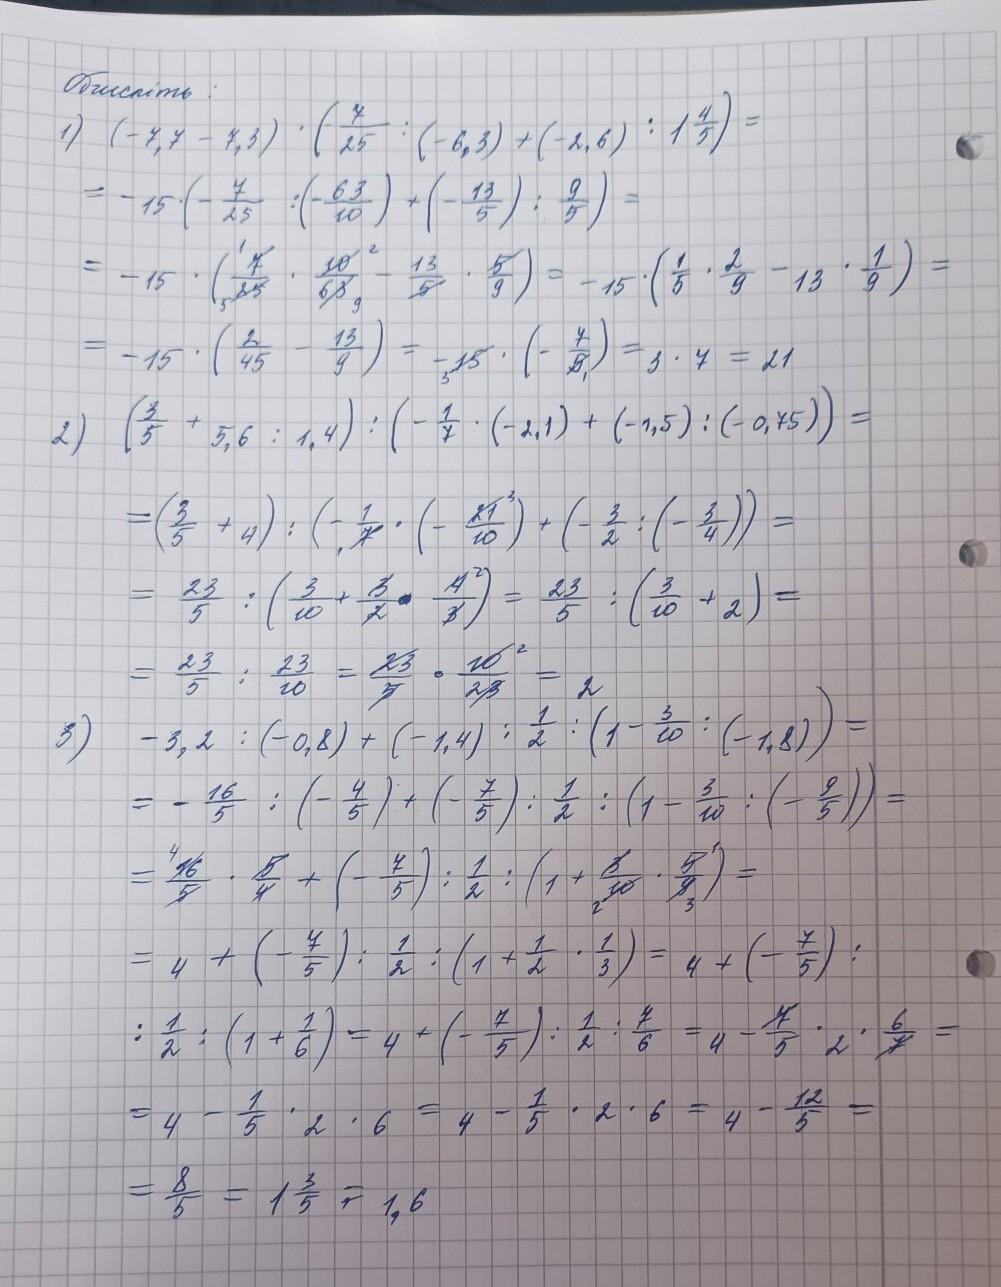 Обчисліть:
1) (-7,7 - 7,3) · (-7/25 : (-6,3) + (-2,6) : 1 4/5) =
= -15 · (-7/25 : (-63/10) + (-13/5) : 9/5) =
= -15 · (7/25 · 10/63 - 13/5 · 5/9) = -15 · (1/5 · 2/9 - 13 · 1/9) =
= -15 · (2/45 - 13/9) = -15 · (-7/5) = 3 · 7 = 21
2) (3/5 + 5,6 : 1,4) : (-1/7 · (-2,1) + (-1,5) : (-0,75)) =
= (3/5 + 4) : (-1/7 · (-21/10) + (-3/2 : (-3/4)) =
= 23/5 : (3/10 + 3/2 · 4/3) = 23/5 : (3/10 + 2) =
= 23/5 : 23/10 = 23/5 · 10/23 = 2
3) -3,2 : (-0,8) + (-1,4) : 1/2 : (1 - 3/10 : (-1,8)) =
= -16/5 : (-4/5) + (-7/5) : 1/2 : (1 - 3/10 : (-9/5)) =
= 16/5 · 5/4 + (-7/5) : 1/2 : (1 + 3/10 · 5/9) =
= 4 + (-7/5) : 1/2 : (1 + 1/2 · 1/3) = 4 + (-7/5) :
: 1/2 : (1 + 1/6) = 4 + (-7/5) : 1/2 : 7/6 = 4 - 7/5 · 2 · 6/7 =
= 4 - 1/5 · 2 · 6 = 4 - 1/5 · 2 · 6 = 4 - 12/5 =
= 8/5 = 1 3/5 = 1,6